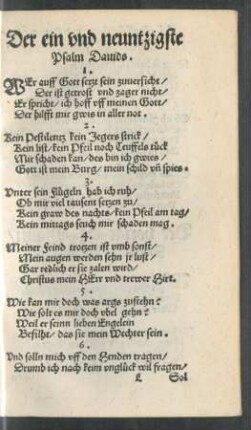 Der ein vnd neuntzigste
Psalm Dauids.
1.
WEr auff Gott setzt sein zuuersicht/
Der ist getrost vnd zager nicht/
Er spricht/ ich hoff vff meinen Gott/
Der hilfft mir gwis in aller not.
2.
Kein Pestilentz kein Jegers strick/
Kein list/ kein Pfeil noch Teuffels tück
Mir schaden kan/ des bin ich gwies/
Gott ist mein Burg/ mein schild vñ spies.
3.
Vnter sein Flügeln hab ich ruh/
Ob mir viel tausent setzen zu/
Kein graw des nachts/ kein Pfeil am tag/
Kein mittags seuch mir schaden mag.
4.
Meiner Feind trotzen ist vmb sonst/
Mein augen werden sehn jr lust/
Gar redlich er sie zalen wird/
Christus mein HErr vnd trewer Hirt.
5.
Wie kan mir doch was args zustehn?
Wie solt es mir doch vbel gehn?
Weil er senn lieben Engelein
Befilht/ das sie mein Wechter sein.
6.
Vnd solln mich vff den Henden tragen/
Drumb ich nach keim vnglück wil fragen/
Sol